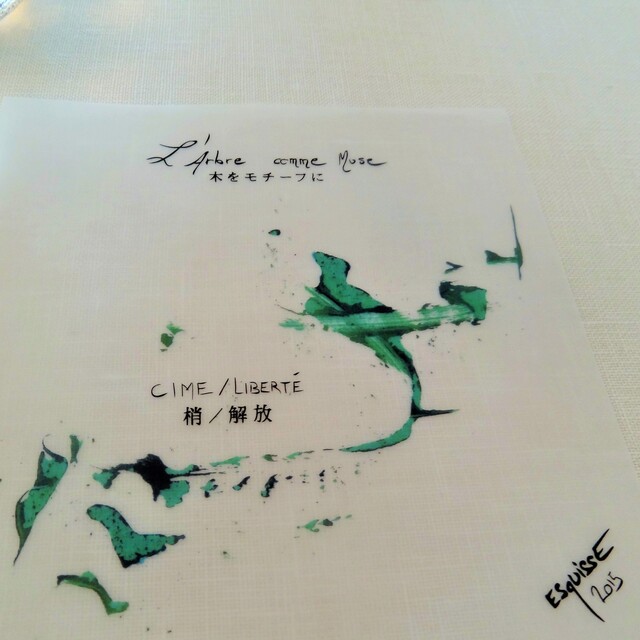 L'Arbre comme Muse
木をモチーフに
CIME / LIBERTÉ
梢／解放
ESquissE
2015